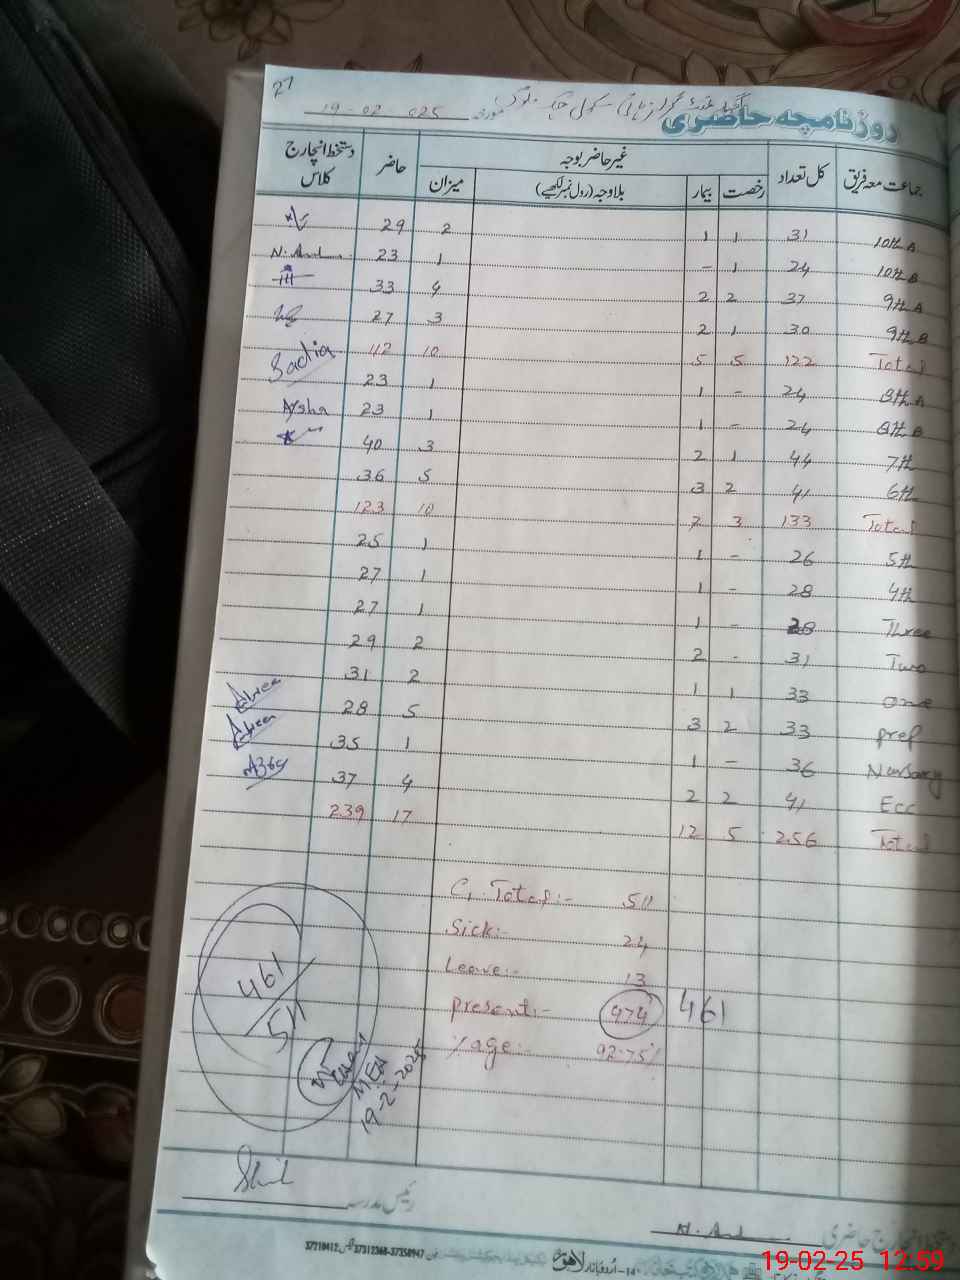 27
روزنامچہ حاضری
مورخہ 19-02-025
جماعت معہ فریق کل تعداد غیر حاضر بوجہ حاضر دستخط انچارج کلاس
رخصت بیمار بلاوجہ (رول نمبر لکھیے) میزان
29 2 1 1 31 10th A
N. 23 1 - 1 24 10th B
33 4 2 2 37 9th A
27 3 2 1 30 9th B
112 10 5 5 122 Total
Sadia 23 1 1 - 24 8th A
Aysha 23 1 1 - 24 8th B
40 3 2 1 44 7th
36 5 3 2 41 6th
123 10 7 3 133 Total
25 1 1 - 26 5th
27 1 1 - 28 4th
27 1 1 - 28 Three
29 2 2 - 31 Two
31 2 1 1 33 one
28 5 3 2 33 prep
35 1 1 - 36 Nursary
37 4 2 2 41 Ecc
239 17 12 5 256 Total
G. Total:- 511
Sick:- 24
Leave:- 13
Present:- 474 461
%age:- 92.75%
461/511
MEA
19-2-2025
رئیس مدرسہ
دستخط انچارج حاضری
37210412 37312368-37350947
اردو بازار لاہور
19-02-25 12:59